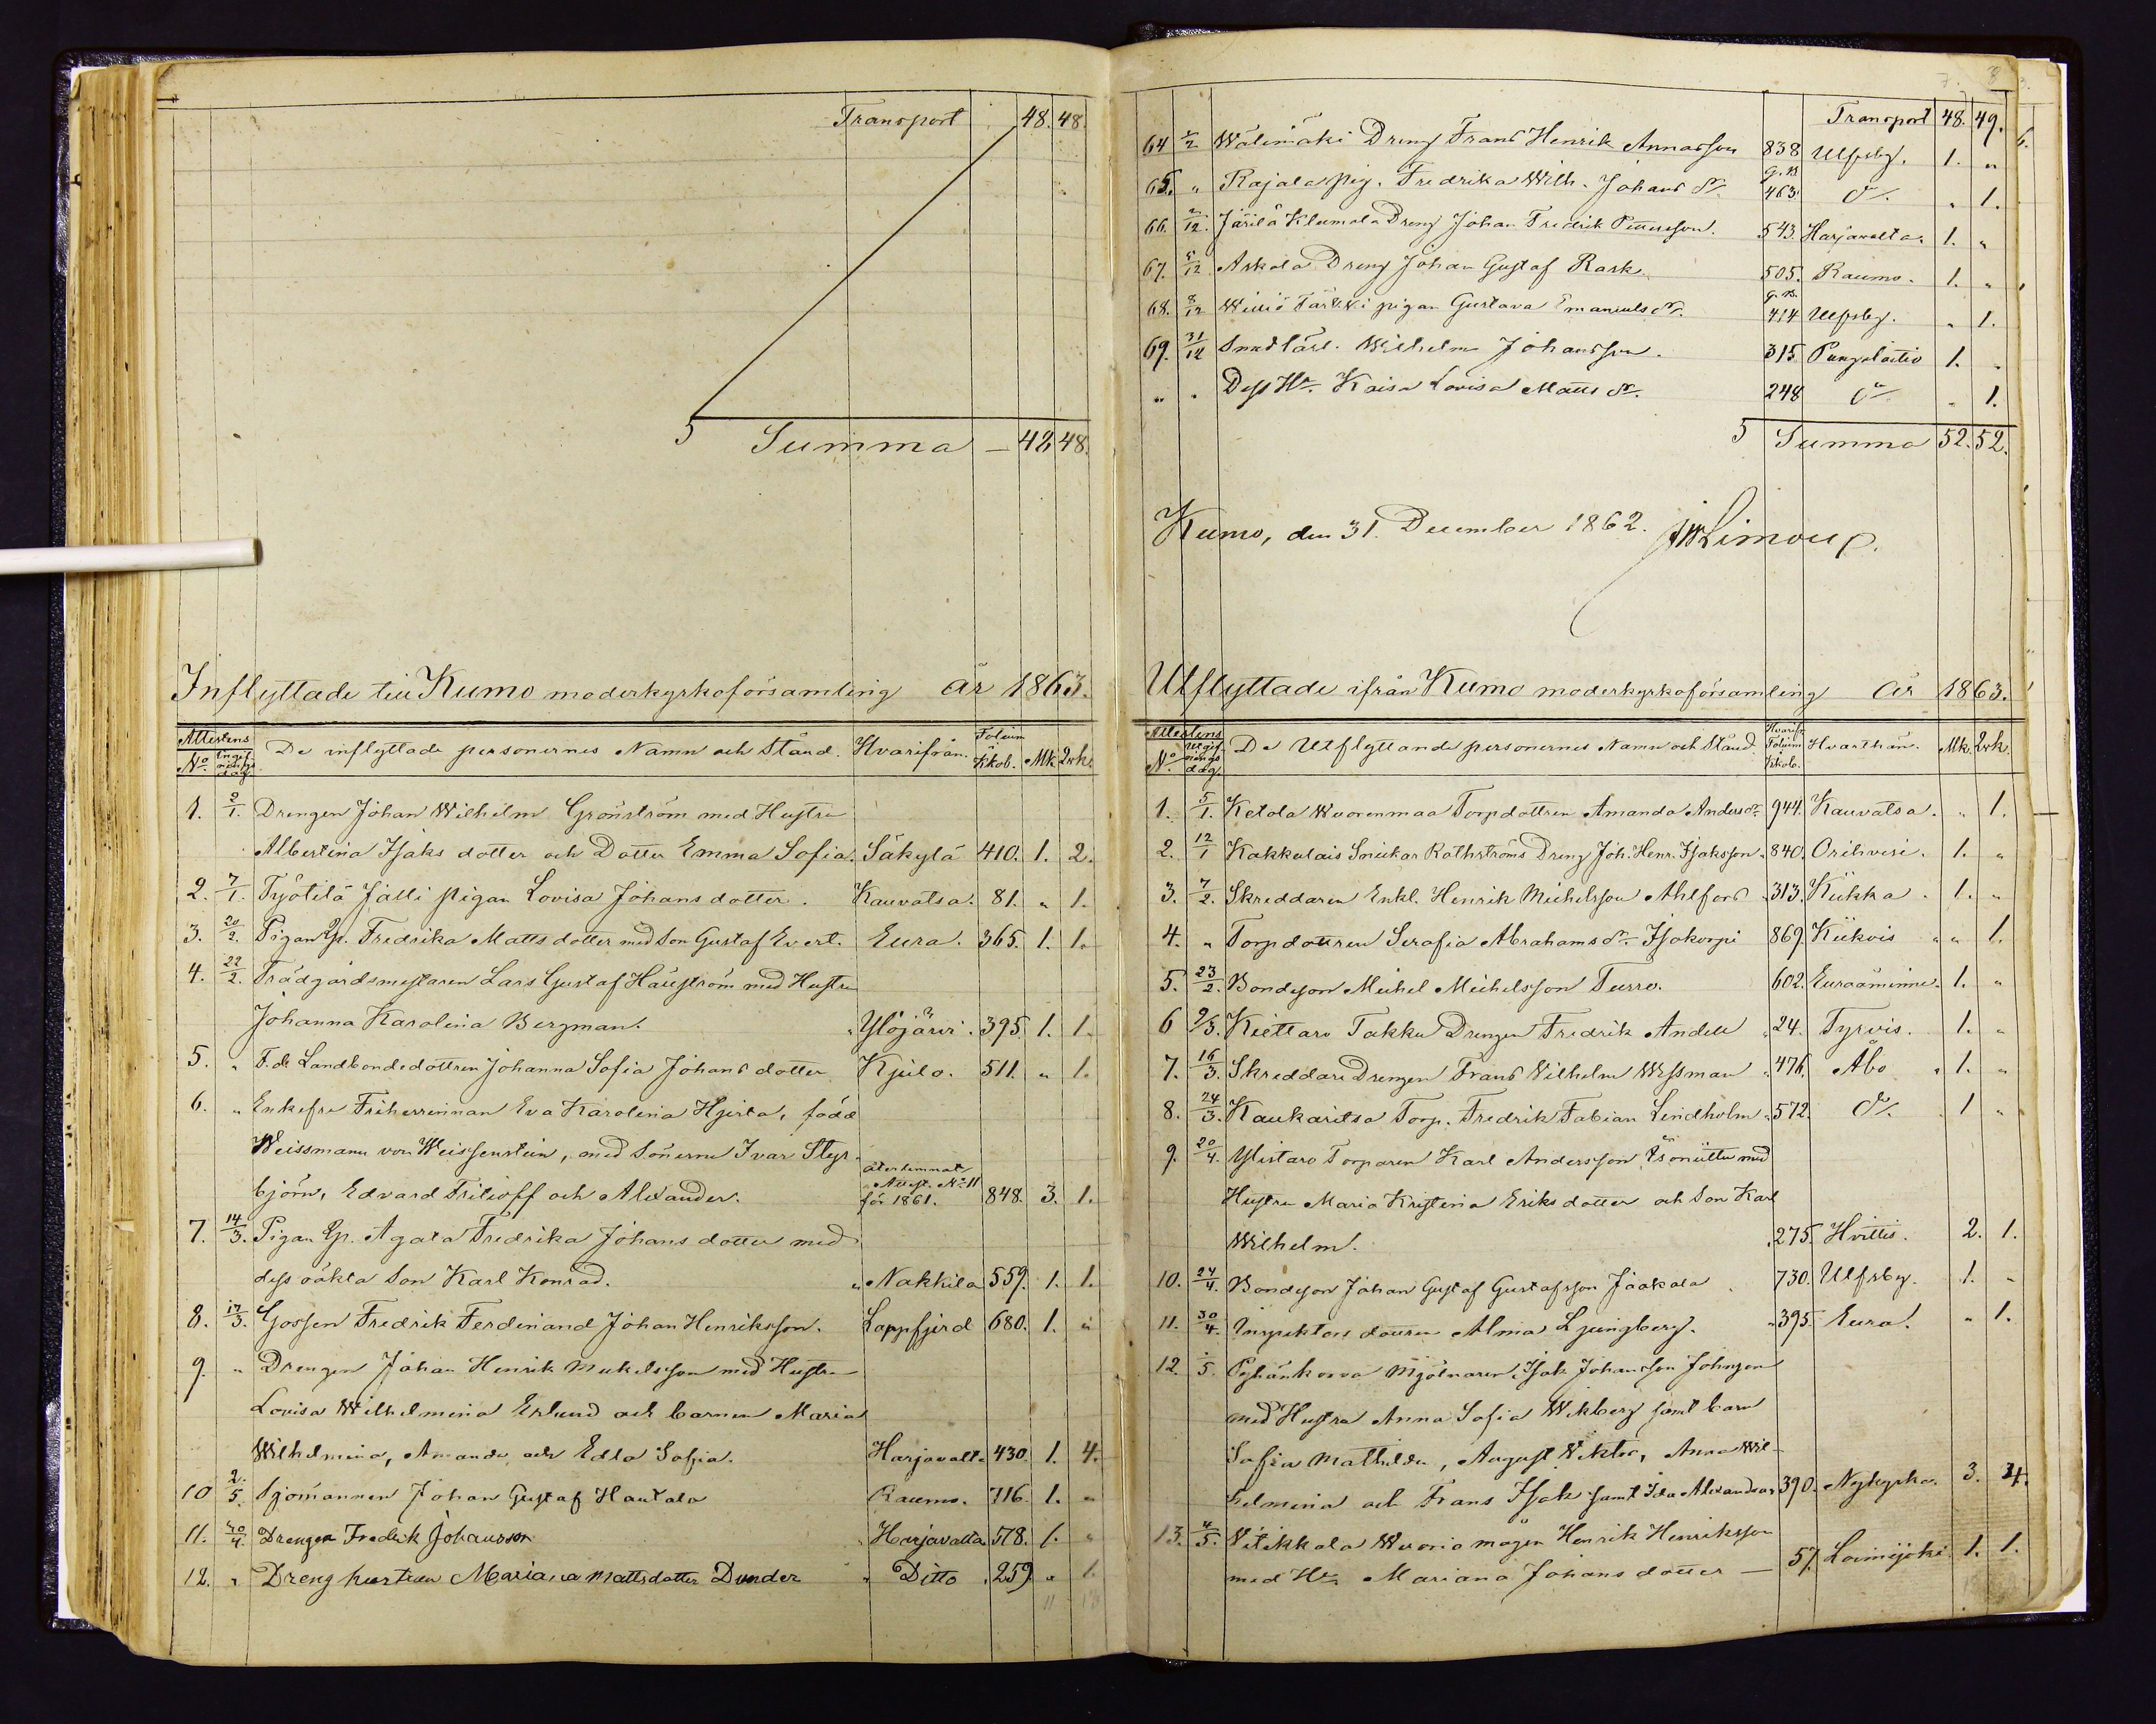 Transport 48. 48.
Summa — 48 48.
Inflyttade till Kumo moderkyrkoförsamling år 1863.
Attestens De inflyttade personernes Namn och Stånd. Hvarifrån. Folium Kkob. Mk Qvk.
No. dag
1. 2/1. Drengen Johan Wilhelm Grönström med Hustru
Albertina Isaks dotter och Dotter Emma Sofia. Säkylä 410. 1. 2.
2. 7/1. Työtilä Jalli pigan Lovisa Johans dotter. Kauvatsa. 81. " 1.
3. 20/2. Pigan Qp. Fredrika Matts dotter med Son Gustaf Evert. Eura. 365. 1. 1.
4. 22/2. Trädgårdsmästaren Lars Gustaf Häggström med Hustru
Johanna Karolina Bergman. " Ylöjärvi. 395. 1. 1.
5. " F.d. Landbondedottren Johanna Sofia Johans dotter Kjulo. 511. " 1.
6. " Enkefru Friherrinnan Eva Karolina Hjerta, född
Weissmann von Weissenstein, med Sönerne Ivar Styr-
björn, Edvard Fritioff och Alexander. återlemnat Attest. No 11 för 1861. 848. 3. 1.
7. 14/3. Pigan Qp. Agata Fredrika Johans dotter med
dess oäkta Son Karl Konrad. " Nakkila 559. 1. 1.
8. 17/3. Gossen Fredrik Ferdinand Johan Henriksson. Lappfjerd 680. 1. "
9. " Drengen Johan Henrik Mickelsson med Hustru
Lovisa Wilhelmina Erlund och barnen Maria
Wilhelmina, Amanda och Edla Sofia. Harjavalta 430. 1. 4.
10 2/5. Sjömannen Johan Gustaf Hautala Raumo. 716. 1. "
11. 30/4. Drengen Fredrik Johansson " Harjavalta 578. 1. "
12. " Dreng hustrun Mariana Mattsdotter Dunder " Ditto . 259 " 1.
Transport 48. 49.
64 2/12 Wälimäki Dreng Frans Henrik Annasson 838 Ulfsby. 1. "
65. " Rajala pig. Fredrika Wilh. Johans dr. G.B. 463. do. " 1.
66. 2/12. Järilä Klemola Dreng Johan Fredrik Pettersson. 543. Harjavalta. 1. "
67. 5/12 Askola Dreng Johan Gustaf Rask. 505. Raumo. 1. "
68. 8/12 Williö Tärkki pigan Gustava Emanuels dr. G.B. 414 Ulfsby. " 1.
69. 31/12 Smedlärl. Wilhelm Johansson. 315. Pungalaitio 1. "
" " Dess Hu. Kaisa Lovisa Matts dr. 248 do " 1.
Summa 52. 52.
Kumo, den 31. December 1862. JWLimoup.
Utflyttade ifrån Kumo moderkyrkoförsamling år 1863.
Attestens De Utflyttande personernes Namn och Stånd. Hvarifr. Folium Kkob. Hvarthän. Mk. Qvk.
No dag.
1. 5/1. Ketola Wuorenmaa Torpdottren Amanda Anders dr. 944. Kauvatsa. " 1.
2. 12/1 Kakkulais Snickar Rothströms Dreng Joh. Henr. Isaksson. 840. Orihvesi. 1. "
3. 7/2. Skreddaren Enkl. Henrik Michelsson Ahlfors 313. Kiikka. 1. "
4. " Torpdottren Serafia Abrahams dr. Isokorpi 869. Kiikois " " 1.
5. 23/2. Bondeson Michel Michelsson Turro. 602. Euraåminne. 1. "
6 9/3. Kiettare Takku Drengen Fredrik Andell 24. Tyrvis. 1. "
7. 16/3. Skreddare Drengen Frans Vilhelm Wessman 476. Åbo " 1. "
8. 24/3. Kaukaritsa Torp. Fredrik Fabian Lindholm 572. do. 1 "
9. 20/4. Ylistaro Torparen Karl Andersson Isoniittu med
Hustru Maria Kristina Eriks dotter och Son Karl
Wilhelm. 275. Hvittis. 2. 1.
10. 24/4. Bondeson Johan Gustaf Gustafsson Jaakola 730. Ulfsby. 1. "
11. 30/4. Inspektors dottren Alma Ljungberg. 395. Eura. " 1.
12. 1/5. Pyhänkorva Mjölnaren Isak Johansson Johnson
med Hustru Anna Sofia Wikberg samt barn
Sofia Mathilda, August Viktor, Anna Wil-
helmina och Frans Isak samt Ida Alexandra 390. Nykyrka. 3. 4.
13. 4/5. Vitikkala Wuorio mågen Henrik Henriksson
med Hu Mariana Johans dotter — 57. Loimijoki. 1. 1.